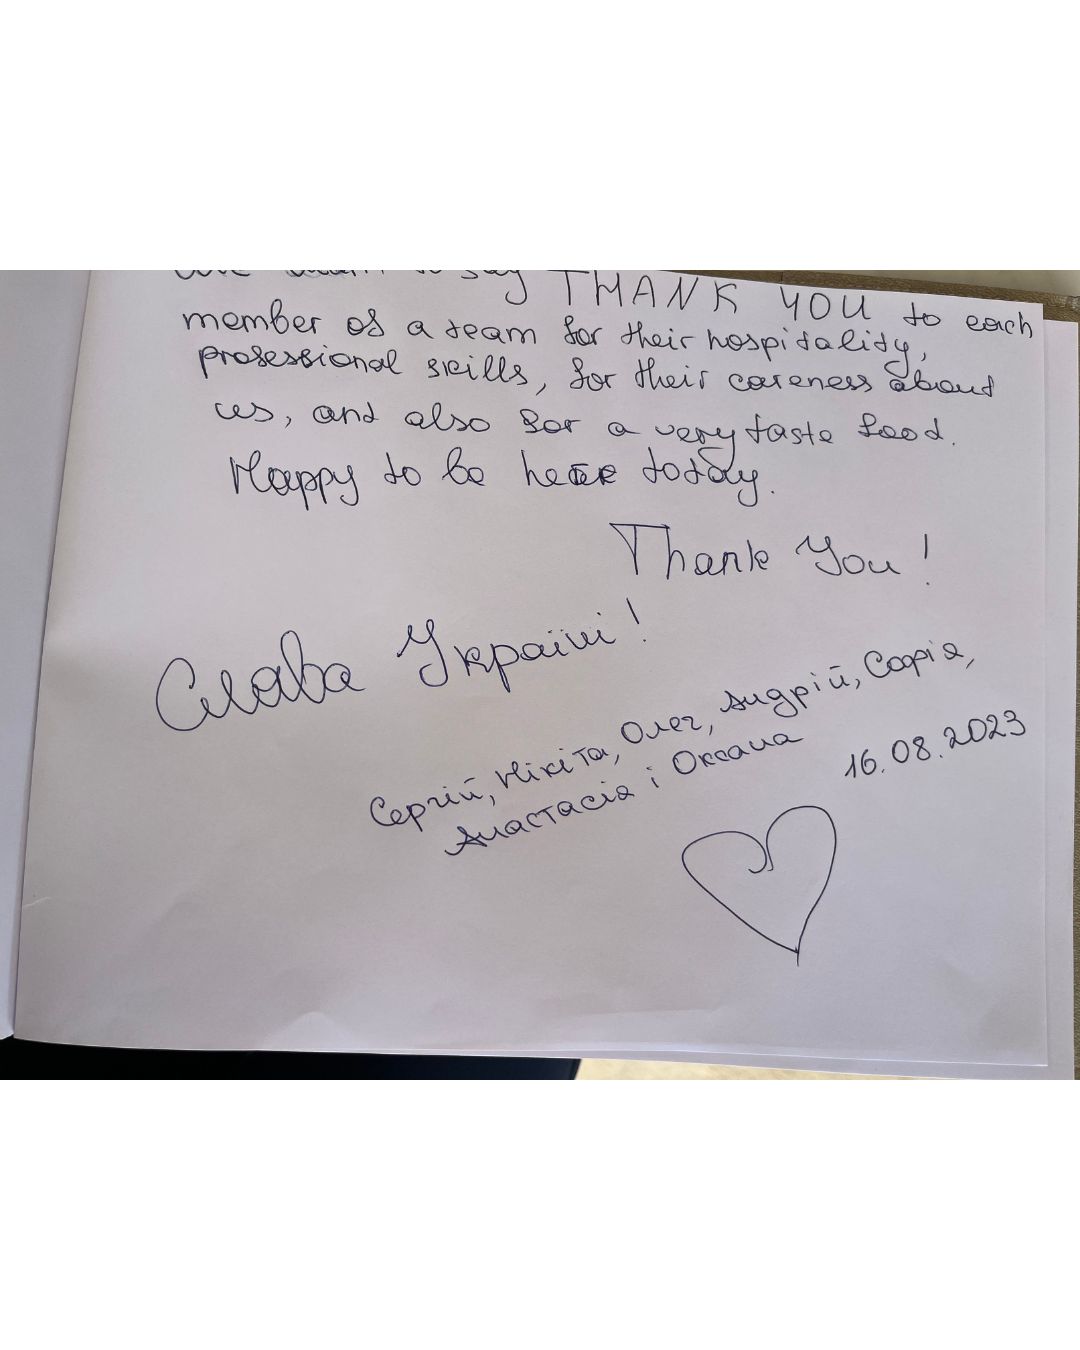 to say THANK YOU to each
member of a team for their hospitality,
professional skills, for their careness about
us, and also for a very taste food.
Happy to be here today.
Thank You!
Слава Україні!
Сергій, Нікіта, Олег, Андрій, Софія,
Анастасія і Оксана
16.08.2023